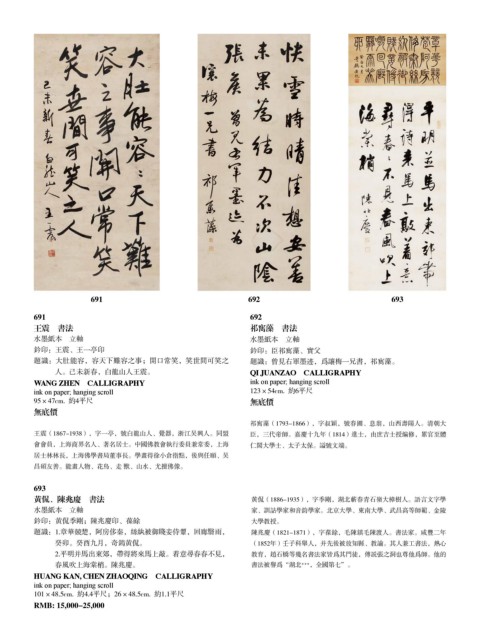 大肚能容容天下難
容之事開口常笑
笑世間可笑之人
己未新春 白龍山人 王震
快雪時晴佳想安善
未果為結力不次山陰
張矦 曾見右軍墨迹為
讓梅一兄書 祁寯藻
平明並馬出東郊帶
得詩來馬上敲著意
尋春春不見春風吹上
海棠梢 陳兆慶
691
692
693
691
王震　書法
水墨紙本　立軸
鈐印：王震、王一亭印
題識：大肚能容，容天下難容之事；開口常笑，笑世間可笑之
人。己未新春，白龍山人王震。
WANG ZHEN　CALLIGRAPHY
ink on paper; hanging scroll
95 × 47cm．約4平尺
無底價
王震（1867-1938），字一亭，號白龍山人、覺器，浙江吳興人。同盟
會會員，上海商界名人、著名居士。中國佛教會執行委員兼常委，上海
居士林林長，上海佛學書局董事長。學畫得徐小倉指點，後與任頤、吳
昌碩友善。能畫人物、花鳥、走獸、山水，尤擅佛像。
692
祁寯藻　書法
水墨紙本　立軸
鈐印：臣祁寯藻、實父
題識：曾見右軍墨迹，爲讓梅一兄書，祁寯藻。
QI JUANZAO　CALLIGRAPHY
ink on paper; hanging scroll
123 × 54cm．約6平尺
無底價
祁寯藻（1793-1866），字叔穎，號春圃、息翁，山西壽陽人。清朝大
臣，三代帝師。嘉慶十九年（1814）進士，由庶吉士授編修，累官至體
仁閣大學士、太子太保。諡號文端。
693
黃侃、陳兆慶　書法
水墨紙本　立軸
鈐印：黃侃季剛；陳兆慶印、葆餘
題識：1.
癸卯。癸酉九月，奇鷂黃侃。
2.平明并馬出東郊，帶得將來馬上敲。着意尋春春不見，
春風吹上海棠梢。陳兆慶。
HUANG KAN, CHEN ZHAOQING　CALLIGRAPHY
ink on paper; hanging scroll
101 × 48.5cm．約4.4平尺；26 × 48.5cm．約1.1平尺
RMB: 15,000-25,000
黃侃（1886-1935），字季剛，湖北蘄春青石嶺大樟樹人。語言文字學
家、訓詁學家和音韵學家。北京大學、東南大學、武昌高等師範、金陵
大學教授。
陳兆慶（1821-1871），字葆餘，毛陳鎮毛陳渡人。書法家。咸豐二年
（1852年）壬子科舉人，升先後被放知縣、教諭。其人兼工書法，熱心
教育，趙石橋等幾名書法家皆爲其門徒，傅談張之洞也尊他爲師。他的
書法被譽爲“湖北***，全國第七”。